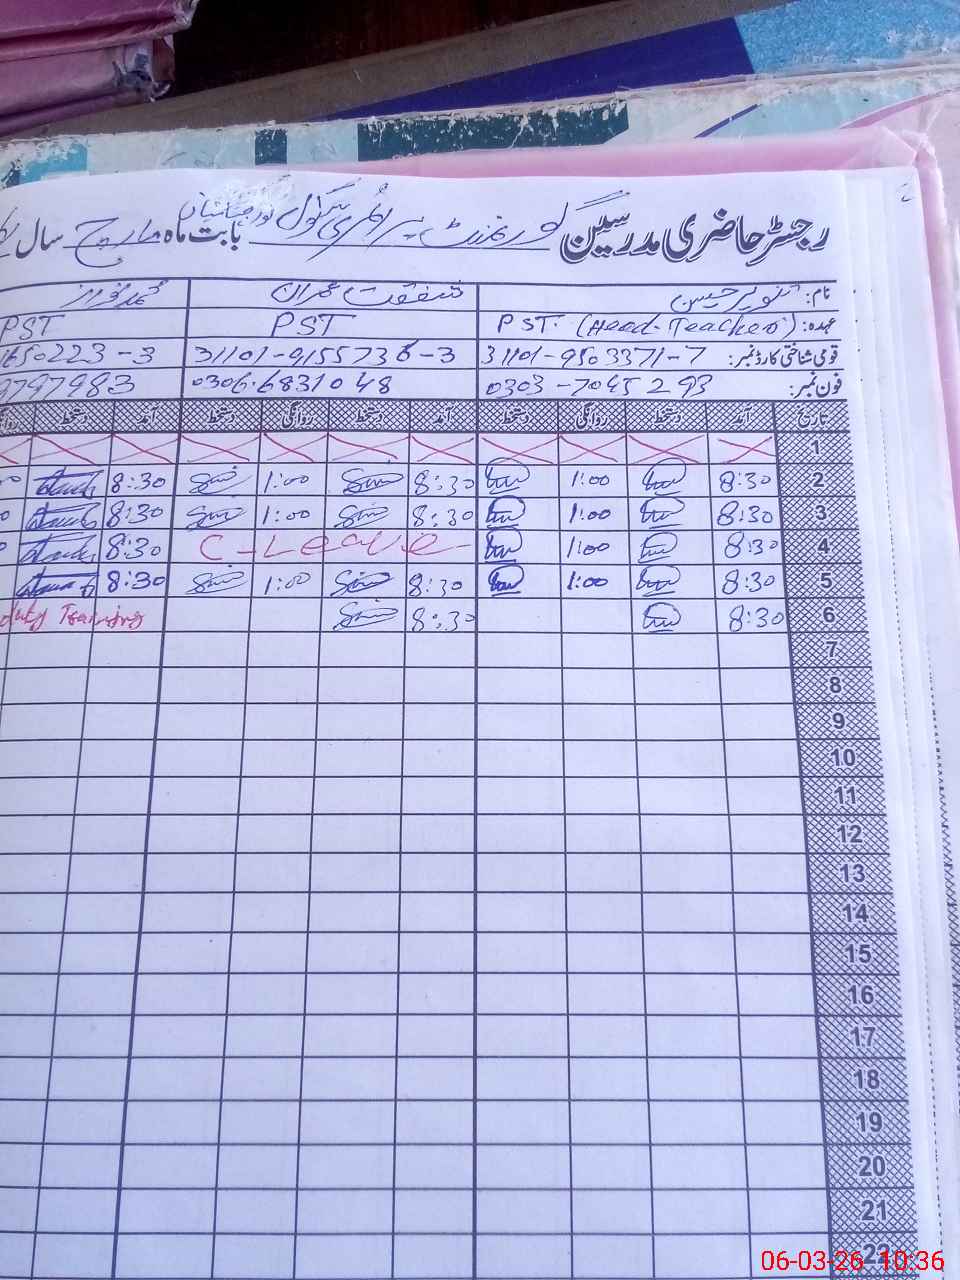 رجسٹر حاضری مدرسین گورنمنٹ پرائمری سکول بابت ماہ مارچ سال
نام: تنویر حسین شفقت عمران محمد نواز
عہدہ: PST. (Head-Teacher) PST PST
قومی شناختی کارڈ نمبر: 31101-9503371-7 31101-9155736-3 1650223-3
فون نمبر: 0303-7045293 0306.6831048 9797983
تاریخ آمد دستخط روانگی دستخط آمد دستخط روانگی دستخط آمد دستخط
1
2 8:30 1:00 8:30 1:00 8:30
3 8:30 1:00 8:30 1:00 8:30
4 8:30 1:00 C-Leave 8:30
5 8:30 1:00 8:30 1:00 8:30
6 8:30 8:30 duty Training
7
8
9
10
11
12
13
14
15
16
17
18
19
20
21
22
06-03-26 10:36